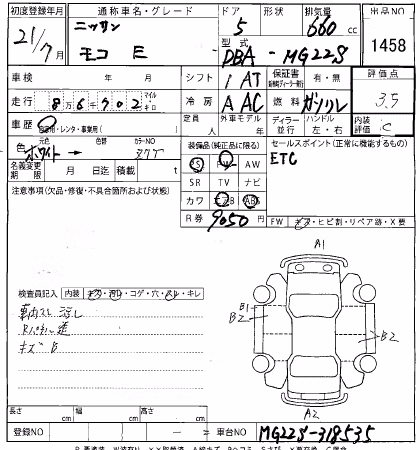 初度登録年月 通称車名・グレード ドア 形状 排気量 出品NO
21/7月 ニッサン モコ E 5 660cc 1458
型式 DBA-MG22S
車検 年 月 シフト 1 AT 保証書 有・無 評価点
走行 86702 マイル キロ 冷房 A AC 燃料 ガソリン 3.5
車歴 自家用・レンタ・事業用( ) 定員 人 外車モデル ディーラー 並行 ハンドル 左・右 内装評価 C
色 元色 ホワイト → 色替 カラーNO 装備品(純正品に限る) セールスポイント(正常に機能するもの)
ETC
名義変更期限 月 日迄 積載 t PS PW AW
注意事項(欠品・修復・不具合箇所および状態) SR TV ナビ
カワ エアB ABS
R券 9050 FW キズ・ヒビ割・リペア跡・X要
A1
検査員記入 内装 キズ・汚レ・コゲ・穴・スレ・キレ
B1
B2
B2
キズ B
A2
長さ cm 幅 cm 高さ cm
登録NO — 車台NO MG22S-318535